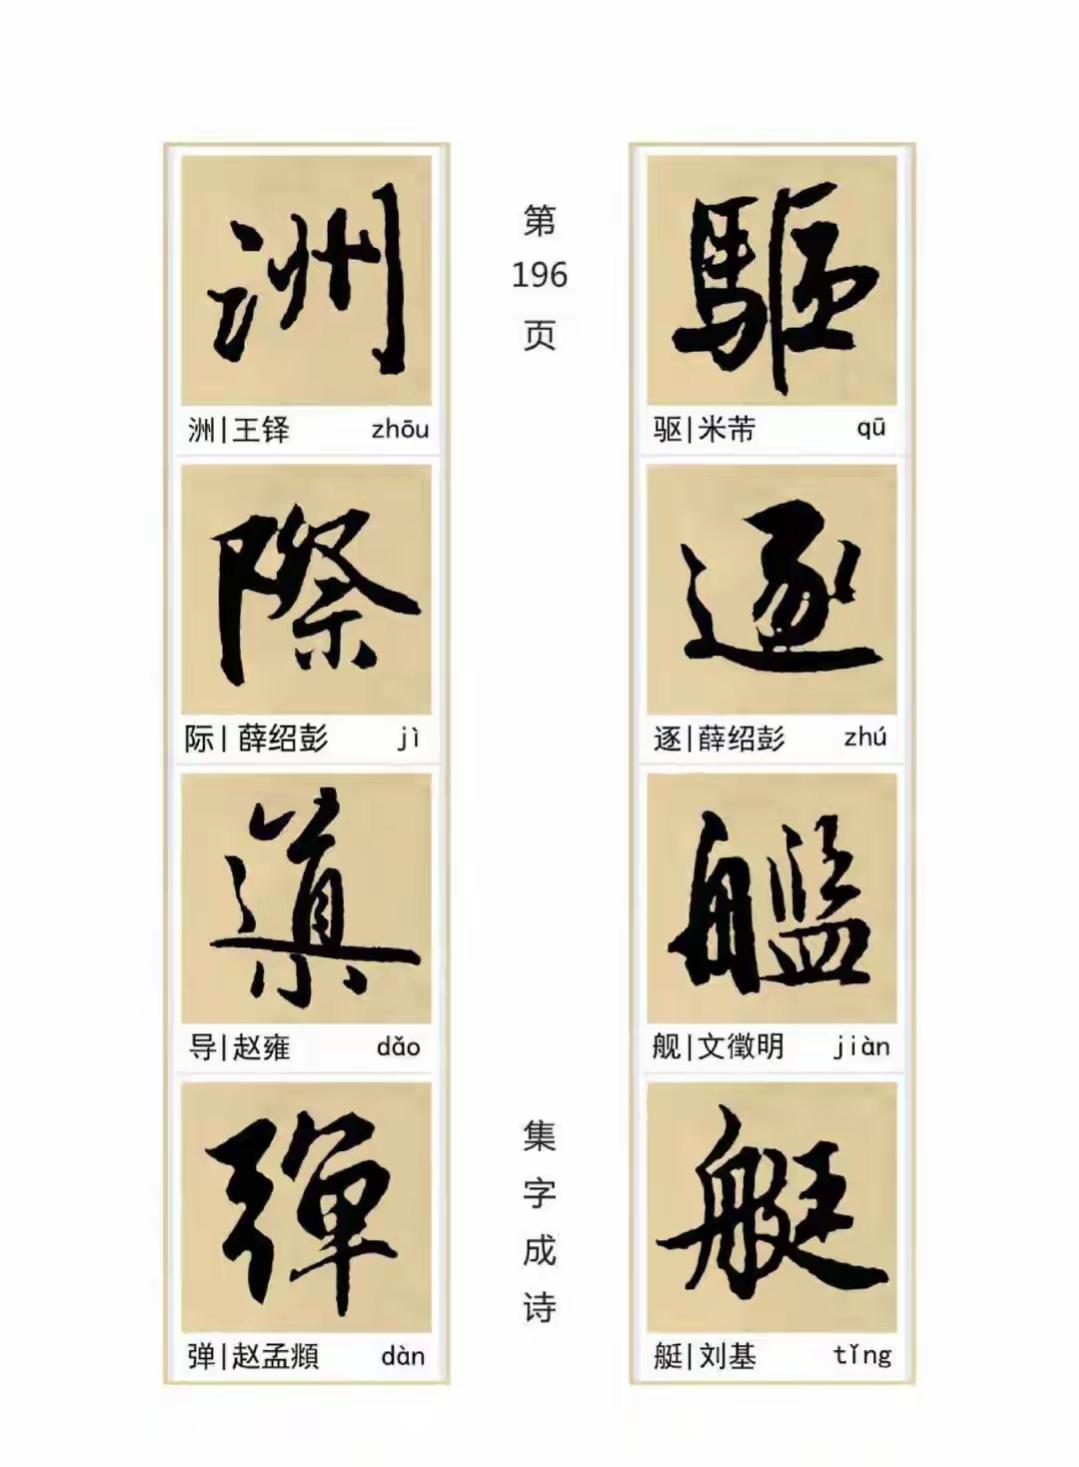 驅
驱|米芾 qū
逐
逐|薛绍彭 zhú
艦
舰|文徵明 jiàn
艇
艇|刘基 tǐng
第
196
页
集
字
成
诗
洲
洲|王铎 zhōu
際
际|薛绍彭 jì
導
导|赵雍 dǎo
彈
弹|赵孟頫 dàn